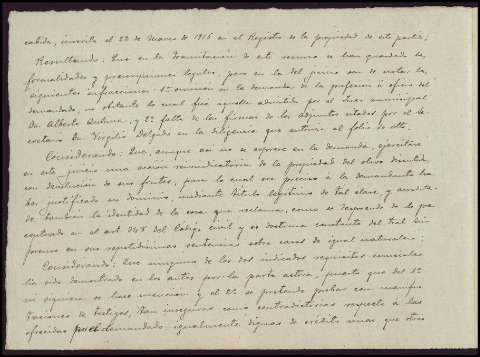 cabida, inscrita el 22 de Marzo de 1916 en el Registro de la propiedad de este partido;
Resultando: Que en la tramitación de este recurso se han guardado las
formalidades y prescripciones legales, pero en la del juicio son de notar las
siguientes infracciones: 1ª omision en la demanda de la profesion ú oficio del
demandado, no obstante lo cual fué aquella admitida por el Juez municipal
Dn. Alberto Molina, y 2ª falta de las firmas de los adjuntos citados por el Se-
cretario Dn Virgilio Delgado en la diligencia que autoriza al folio de otto.
Considerando: Que, aunque así no se exprese en la demanda, ejercítase
en este juicio una accion reivindicatoria de la propiedad del olivo discutido,
con devolucion de sus frutos, para lo cual era preciso á la demandante ha-
ber justificado su dominio, mediante título legítimo de tal clase, y acredita-
do tambien la identidad de la cosa que reclama, como se desprende de lo pre-
ceptuado en el art 348 del Código civil y es doctrina constante del Tral Su-
premo en sus repetidísimas sentencias sobre casos de igual naturaleza;
Considerando: Que ninguno de los dos indicados requisitos esenciales
ha sido demostrado en los autos por la parte actora, puesto que del 1º
ni siquiera se hace mencion y el 2º se pretende probar con manifes-
taciones de testigos, tan inseguras como contradictorias respecto á las
ofrecidas por el demandado igualmente dignas de crédito unas que otras